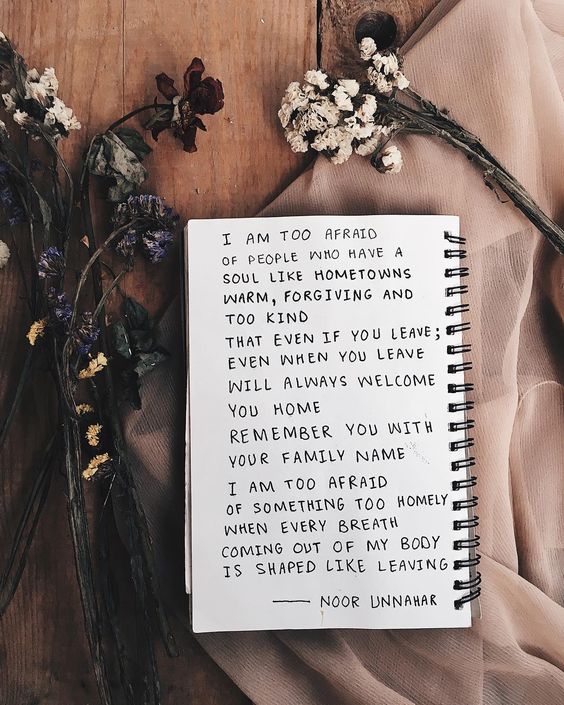 I AM TOO AFRAID
OF PEOPLE WHO HAVE A
SOUL LIKE HOMETOWNS
WARM, FORGIVING AND
TOO KIND
THAT EVEN IF YOU LEAVE;
EVEN WHEN YOU LEAVE
WILL ALWAYS WELCOME
YOU HOME
REMEMBER YOU WITH
YOUR FAMILY NAME
I AM TOO AFRAID
OF SOMETHING TOO HOMELY
WHEN EVERY BREATH
COMING OUT OF MY BODY
IS SHAPED LIKE LEAVING
— NOOR UNNAHAR